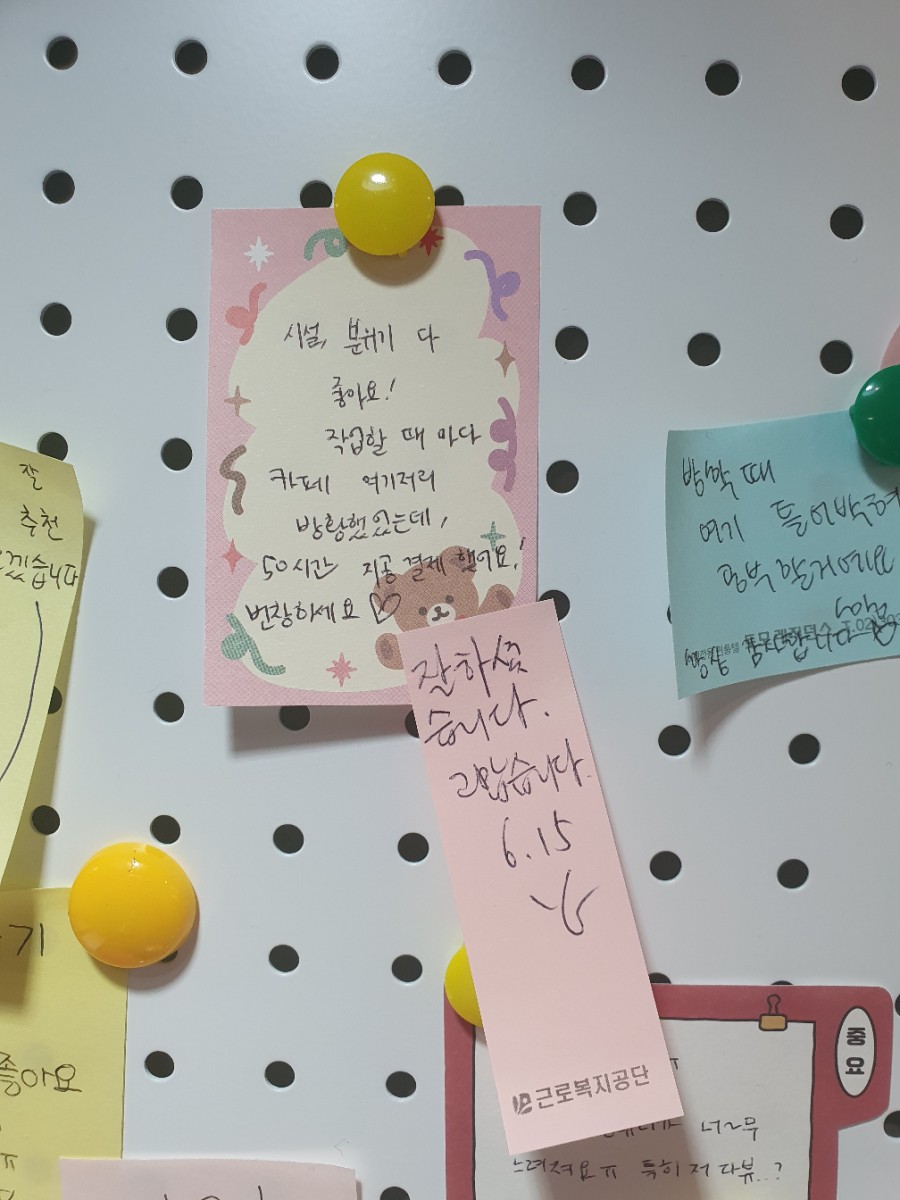 시설, 분위기 다
좋아요!
작업할 때 마다
카페 여기저리
방황했었는데,
50시간 지공 결제 했어요!
번창하세요 ♡
잘하셨
습니다.
고맙습니다.
6.15
근로복지공단
잘
추천
겠습니다
방학 때
여기 틀어박혀
공부 할거예요
기
좋아요
ㅠ
중
요
너~무
느려져요 ㅠ 특히 저 다뷰...?